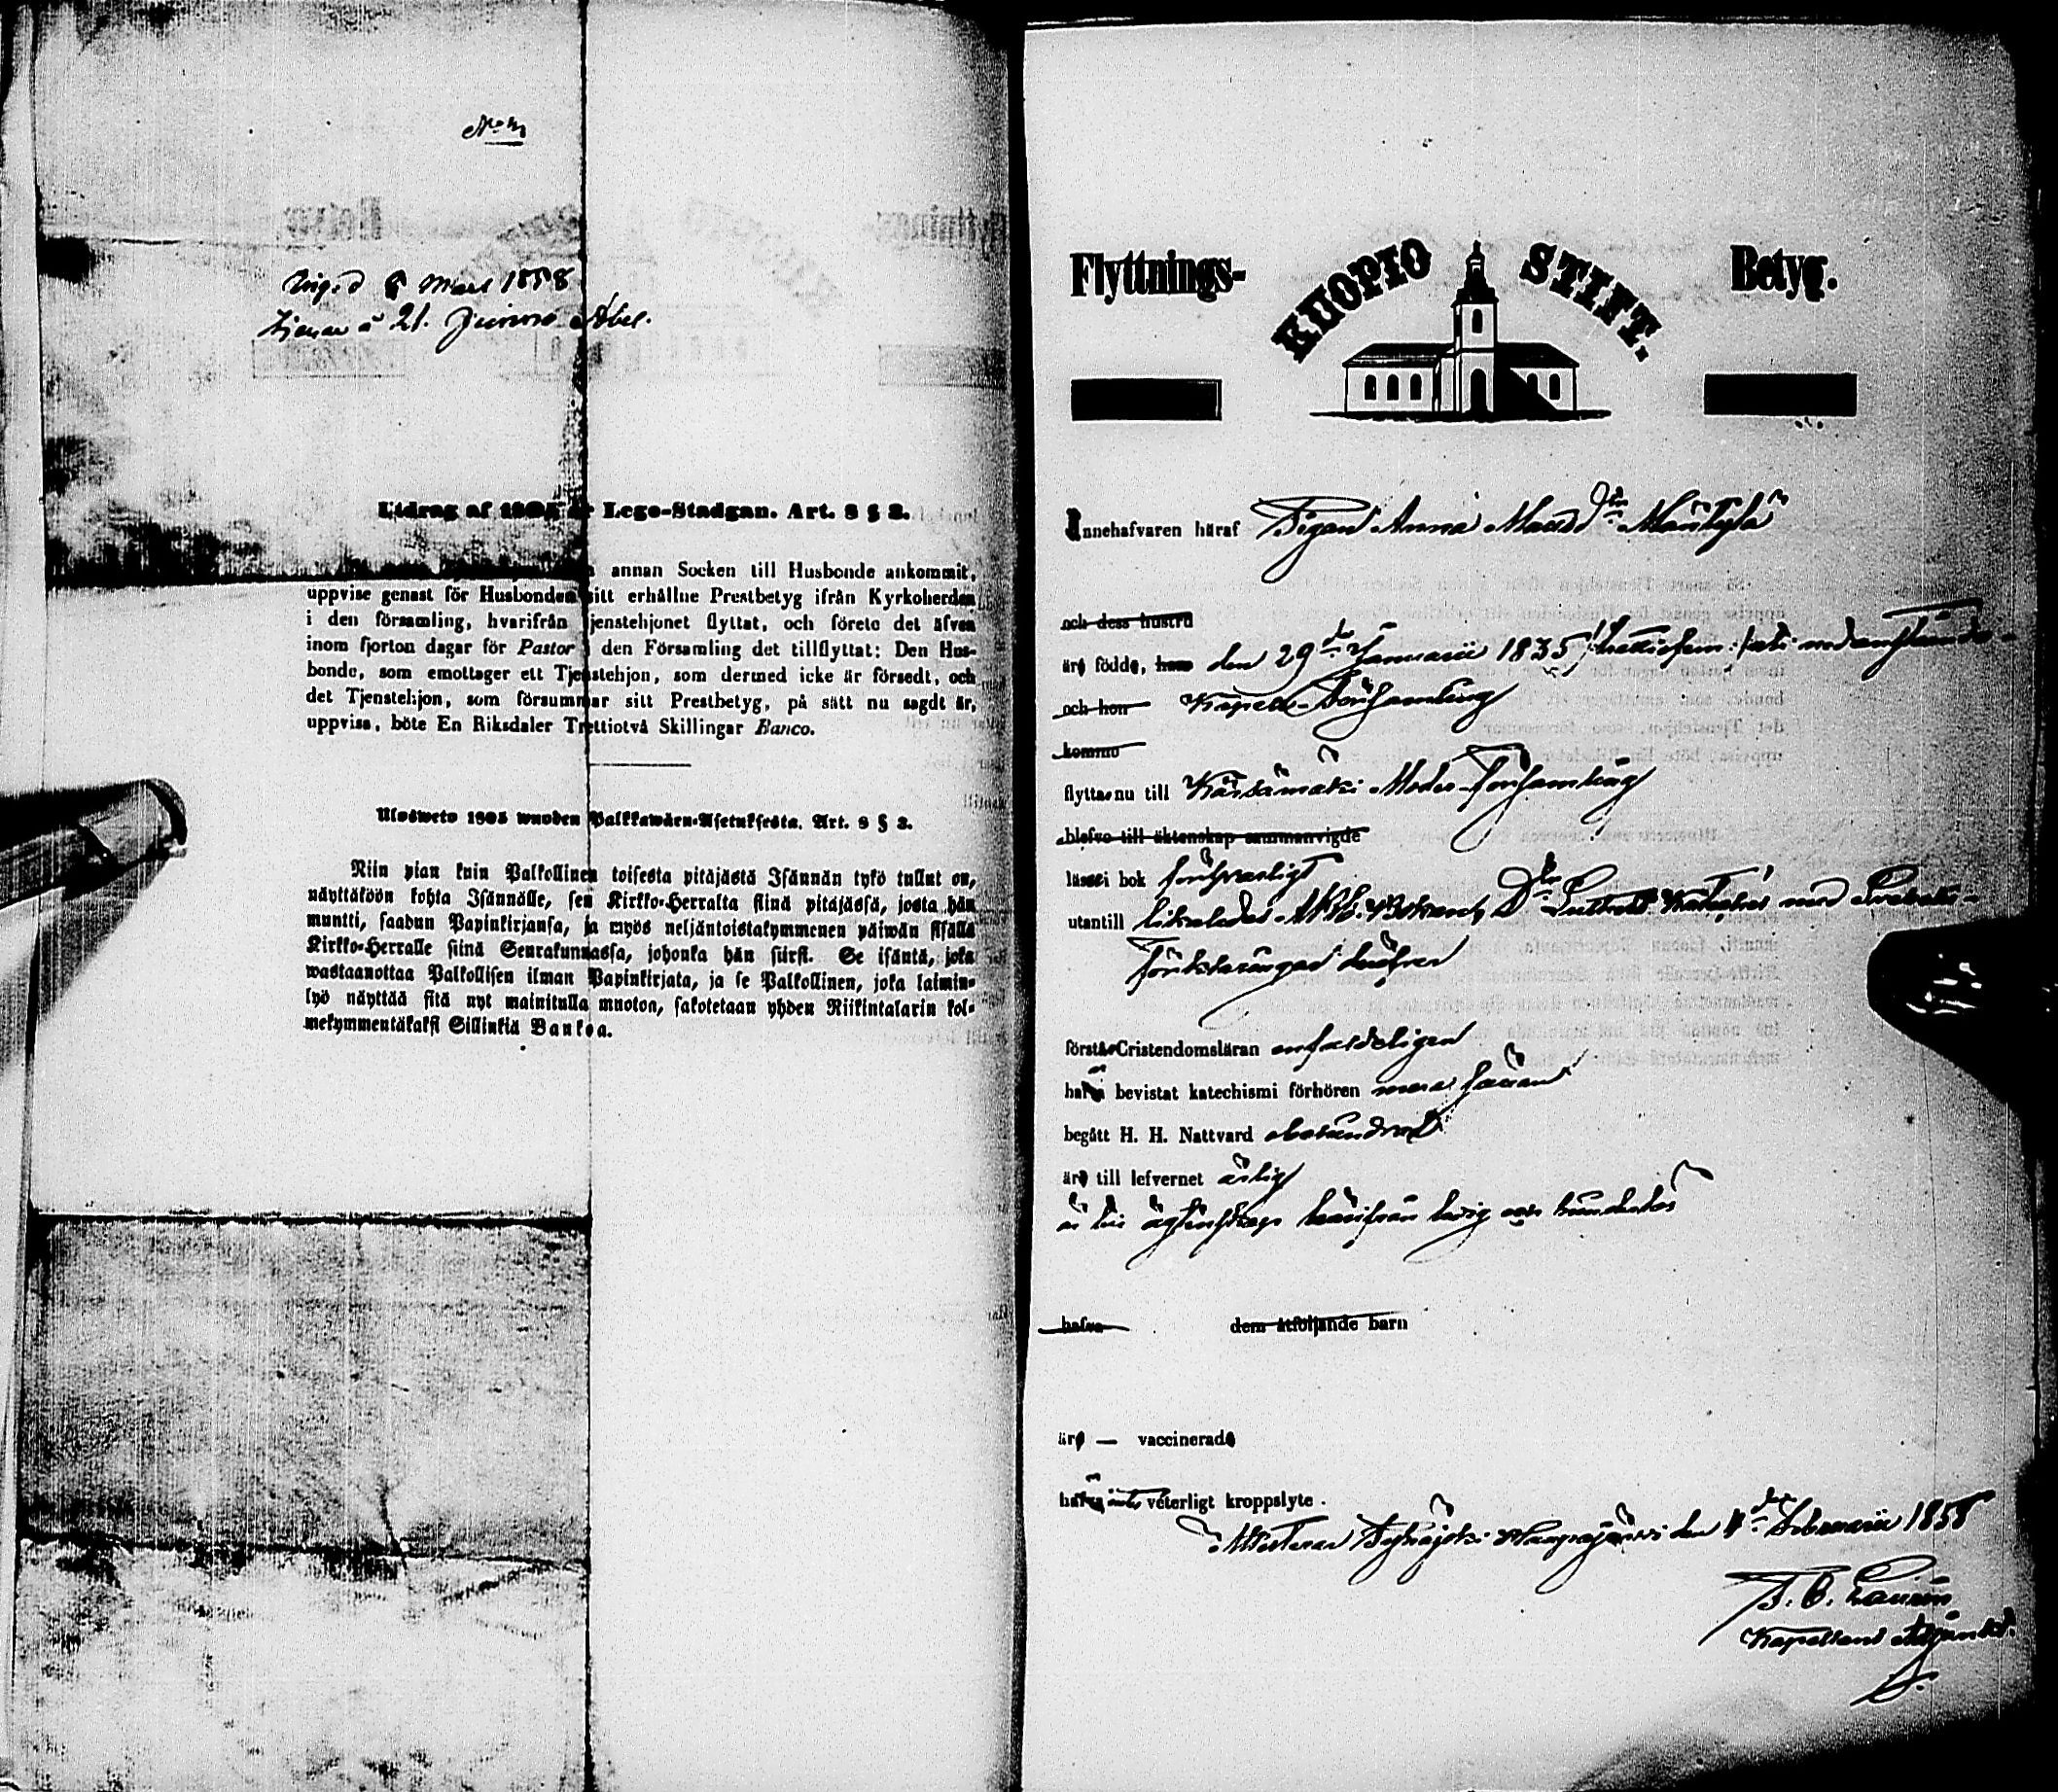 Ing. d 8 Mars 1858
tjenar å 21. Junno Abel.
Utdrag af 1805 år Lego-Stadgan. Art. 8 § 2.
annan Socken till Husbonde ankommit,
uppvise genast för Husbonden sitt erhållne Prestbetyg ifrån Kyrkoherden
i den församling, hvarifrån tjenstehjonet flyttat, och förete det äfven
inom fjorton dagar för Pastor i den Församling det tillflyttat: Den Hus-
bonde, som emottager ett Tjenstehjon, som dermed icke är försedt, och
det Tjenstehjon, som försummar sitt Prestbetyg, på sätt nu sagdt är,
uppvisa, böte En Riksdaler Trettiotvå Skillingar Banco.
Ulosweto 1805 wuoden Palkkawäen-Asetuksesta. Art. 8 § 2.
Niin pian kuin Palkollinen toisesta pitäjästä Isännän tykö tullut on,
näyttäköön kohta Isännälle, sen Kirkko-Herralta siinä pitäjässä, josta hän
muutti, saadun Papinkirjansa, ja myös neljäntoistakymmenen päiwän sisällä
Kirkko-Herralle siinä Seurakunnassa, johonka hän siirsi. Se isäntä, joka
wastaanottaa Palkollisen ilman Papinkirjata, ja se Palkollinen, joka laimin-
lyö näyttää sitä nyt mainitulla muoton, sakotetaan yhden Riikintalarin kol-
mekymmentäkaksi Sillinkiä Bankoa.
Flyttnings- KUOPIO STIFT. Betyg.
Innehafvaren häraf Pigan Anna Matsdtr Mäntylä
och dess hustru
äro födde, han den 29de Januarii 1835 /: trettiofem :/ uti nedanstående
och hon Kapells-Församling
kommo
flytta nu till Kärsämäki Moder-Församling
blefvo till äktenskap sammanvigde
läsa i bok försvarligt
utantill likaledes ABC-Boken, Dr Luthers Katekes med Svebelii
Förklaringar
förstå Cristendomsläran enfaldeligen
hafva bevistat katechismi förhören
begått H. H. Nattvard oberündrad
äro till lefvernet ärlig
är till ägtenskap härifrån ledig och hinderlös
hafva dem åtföljande barn
äro — vaccinerade
hafva intet veterligt kroppslyte.
Haapajärvi den Februarii 1858
Kapellans Adjunkt.